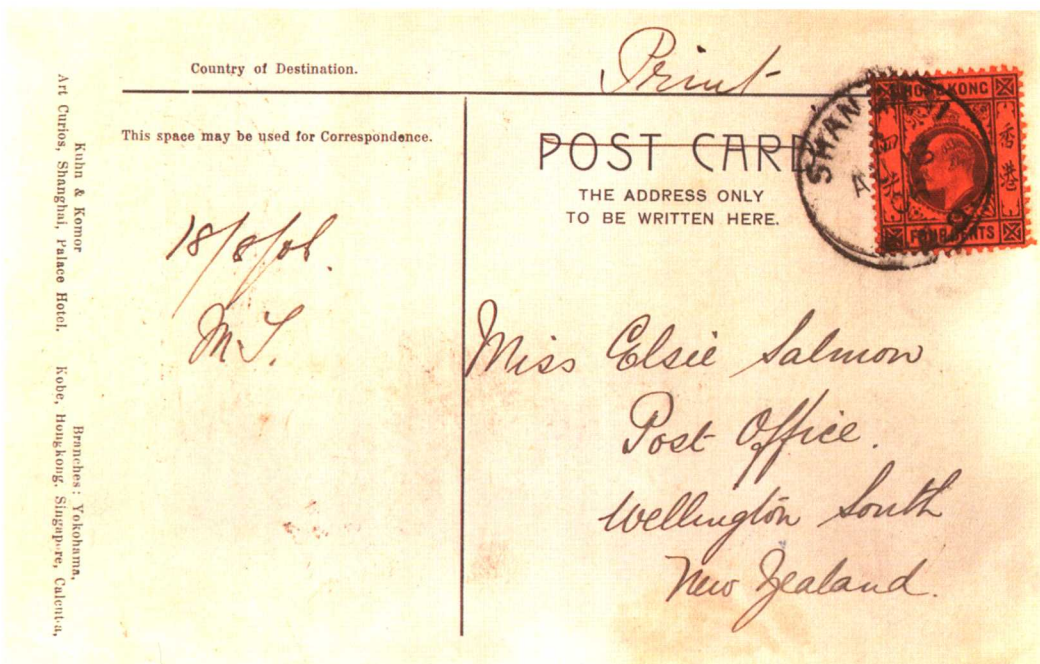 Country of Destination.
Print
This space may be used for Correspondence.
POST CARD
THE ADDRESS ONLY
TO BE WRITTEN HERE.
HONGKONG
香港
FOUR CENTS
18/8/08.
M.S.
Miss Elsie Salmon
Post Office.
Wellington South
New Zealand.
Kuhn & Komor
Art Curios, Shanghai, Palace Hotel.
Branches: Yokohama,
Kobe, Hongkong, Singapore, Calcutta,